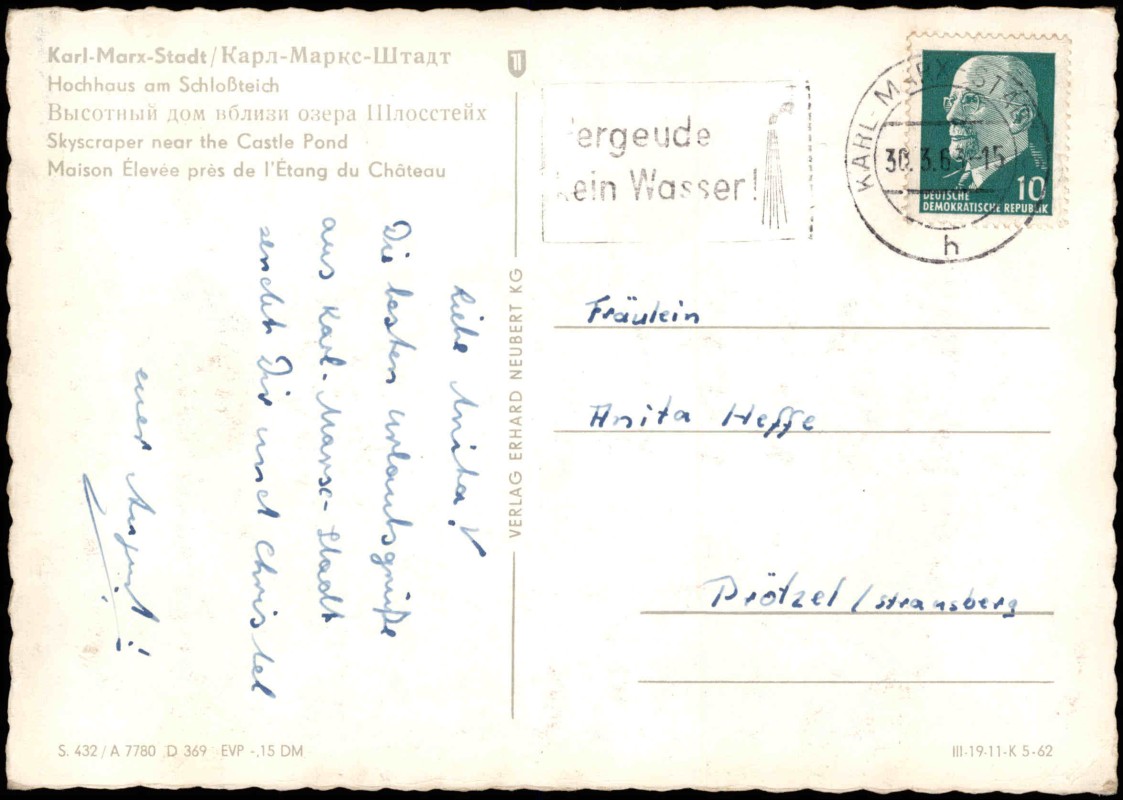 Karl-Marx-Stadt/Карл-Маркс-Штадт
Hochhaus am Schloßteich
Высотный дом вблизи озера Шлосстейх
Skyscraper near the Castle Pond
Maison Élevée près de l'Étang du Château
Liebe Anita!
Die besten Urlaubsgrüße
aus Karl-Marx-Stadt
sendet Dir und Christel
euer August!
VERLAG ERHARD NEUBERT KG
ergeude
kein Wasser!
KARL-MARX-STADT
30.3.63-15
h
10
DEUTSCHE
DEMOKRATISCHE REPUBLIK
Fräulein
Anita Heffe
Prötzel/strausberg
S. 432/A 7780 D 369 EVP -,15 DM
III-19-11-K 5-62